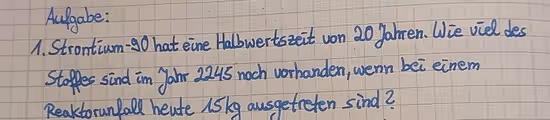 Aufgabe:
1. Strontium-90 hat eine Halbwertszeit von 20 Jahren. Wie viel des
Stoffes sind im Jahr 2245 noch vorhanden, wenn bei einem
Reaktorunfall heute 15kg ausgetreten sind?